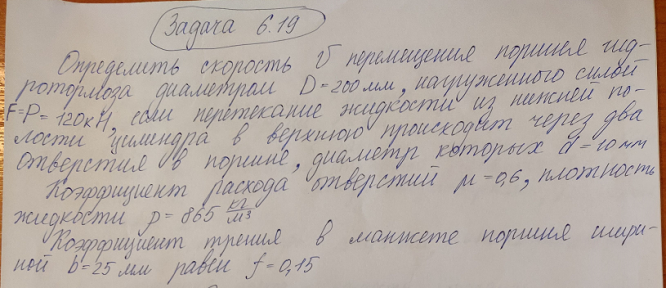 Задача 6.19
Определить скорость υ перемещения поршня гид-
ротормоза диаметром D=200мм, нагруженного силой
F=P=120кН, если перетекание жидкости из нижней по-
лости цилиндра в верхнюю происходит через два
отверстия в поршне, диаметр которых d=10мм
Коэффициент расхода отверстий μ=0,6, плотность
жидкости ρ=865 кг/м3
Коэффициент трения в манжете поршня шири-
ной b=25мм равен f=0,15